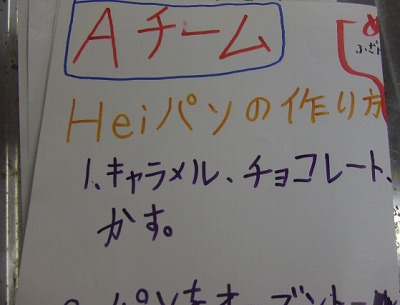 Aチーム
Heiパンの作り方
1、キャラメル、チョコレート、
かす。